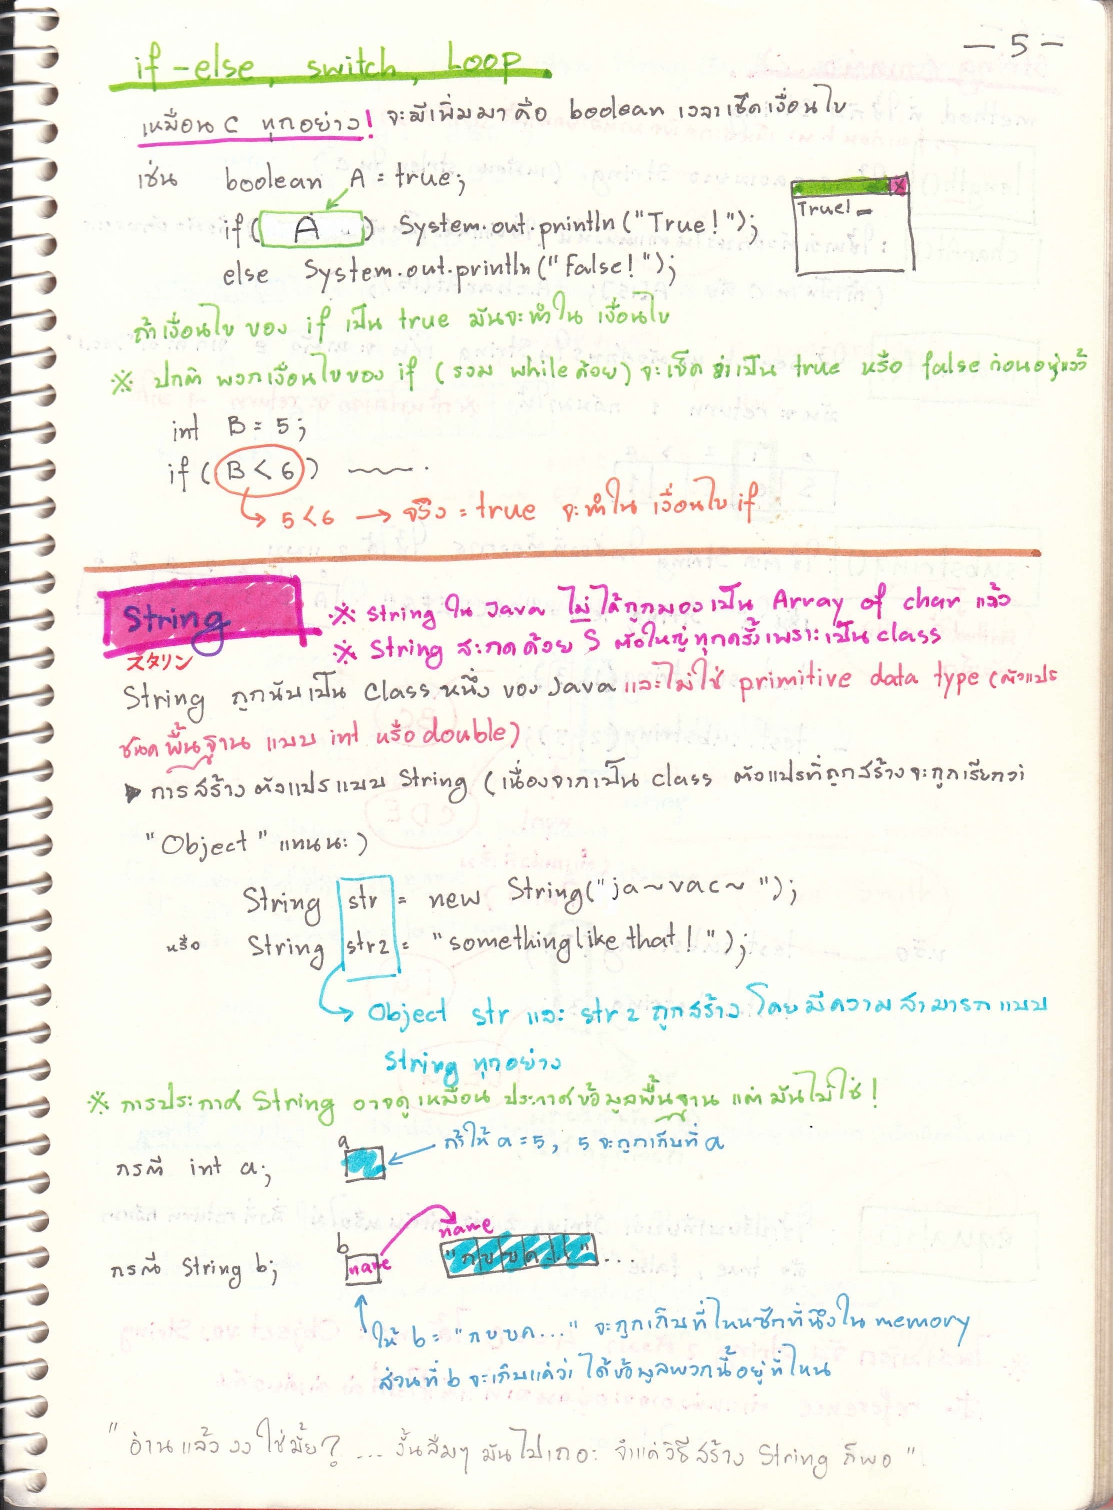 — 5 —
if-else, switch, Loop.
เหมือน C ทุกอย่าง! จะมีเพิ่มมาคือ boolean เวลาเช็คเงื่อนไข
เช่น boolean A = true;
if( A ) System.out.println("True!");
else System.out.println("False!");
True!_
x
ถ้าเงื่อนไข ของ if เป็น true มันจะทำใน เงื่อนไข
※ ปกติ พวกเงื่อนไขของ if (รวม while ด้วย) จะเช็ค ว่าเป็น true หรือ false ก่อนอยู่แล้ว
int B = 5;
if ( B < 6 ) ~~~.
↳ 5 < 6 → จริง = true จะทำใน เงื่อนไข if
String
※ String ใน Java ไม่ได้ถูกมองเป็น Array of char แล้ว
※ String สะกดด้วย S ตัวใหญ่ทุกครั้งเพราะเป็น class
スタリン
String ถูกนับเป็น Class หนึ่ง ของ Java และไม่ใช่ primitive data type (ตัวแปร
ชนิดพื้นฐาน แบบ int หรือ double)
► การสร้าง ตัวแปรแบบ String (เนื่องจากเป็น class ตัวแปรที่ถูกสร้างจะถูกเรียกว่า
"Object" แทนนะ)
String str = new String("ja~vac~");
หรือ String str2 = "somethinglike that!");
Object str และ str2 ถูกสร้าง โดยมีความสามารถแบบ
String ทุกอย่าง
※ การประกาศ String อาจดูเหมือน ประกาศข้อมูลพื้นฐาน แต่มันไม่ใช่!
กรณี int a;
a
ถ้าให้ a = 5, 5 จะถูกเก็บที่ a
กรณี String b;
b
name
name
"กขขค..." ...
ให้ b = "กขขค..." จะถูกเก็บที่ไหนซักที่นึงใน memory
ส่วนที่ b จะเก็บแค่ว่า ได้ข้อมูลพวกนี้อยู่ที่ไหน
"อ่านแล้ว งง ใช่มั้ย? ... งั้นลืมๆ มันไปเถอะ จำแค่วิธีสร้าง String ก็พอ"